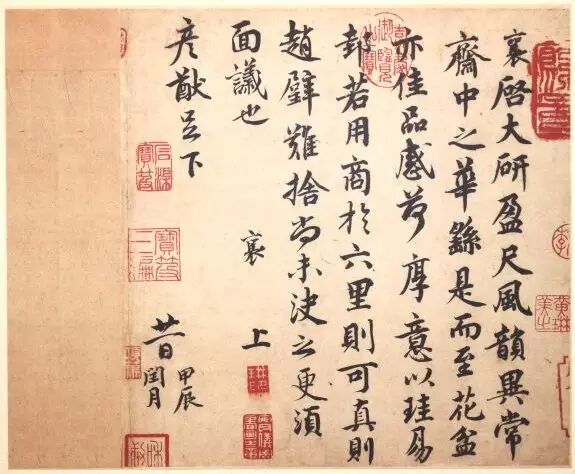 襄啓大研盈尺風韻異常
齋中之華繇是而至花盆
亦佳品感荷厚意以珪易
邽若用商於六里則可真則
趙璧難捨尚未決之更須
面議也
襄上
彦猷足下
廿一日甲辰閏月